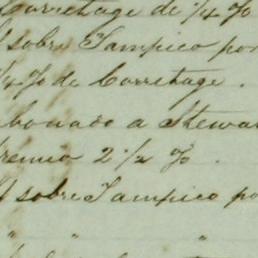 Corretage de 1/4 %
sobre Tampico por
1/4 % de Corretage.
abonado a Stewar
Premio 2 1/2 %.
sobre Tampico po
" " "